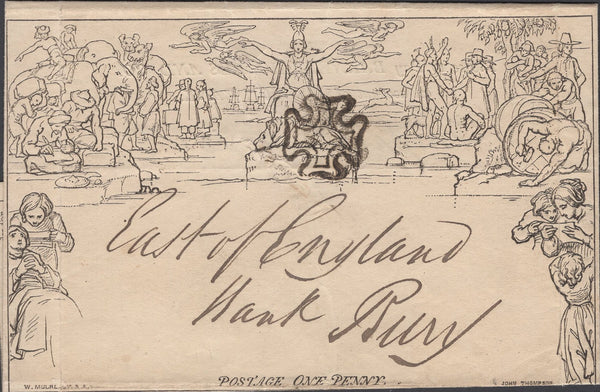 East of England
Bank Bury
POSTAGE ONE PENNY.
W. MULREADY. R.A.
JOHN THOMPSON